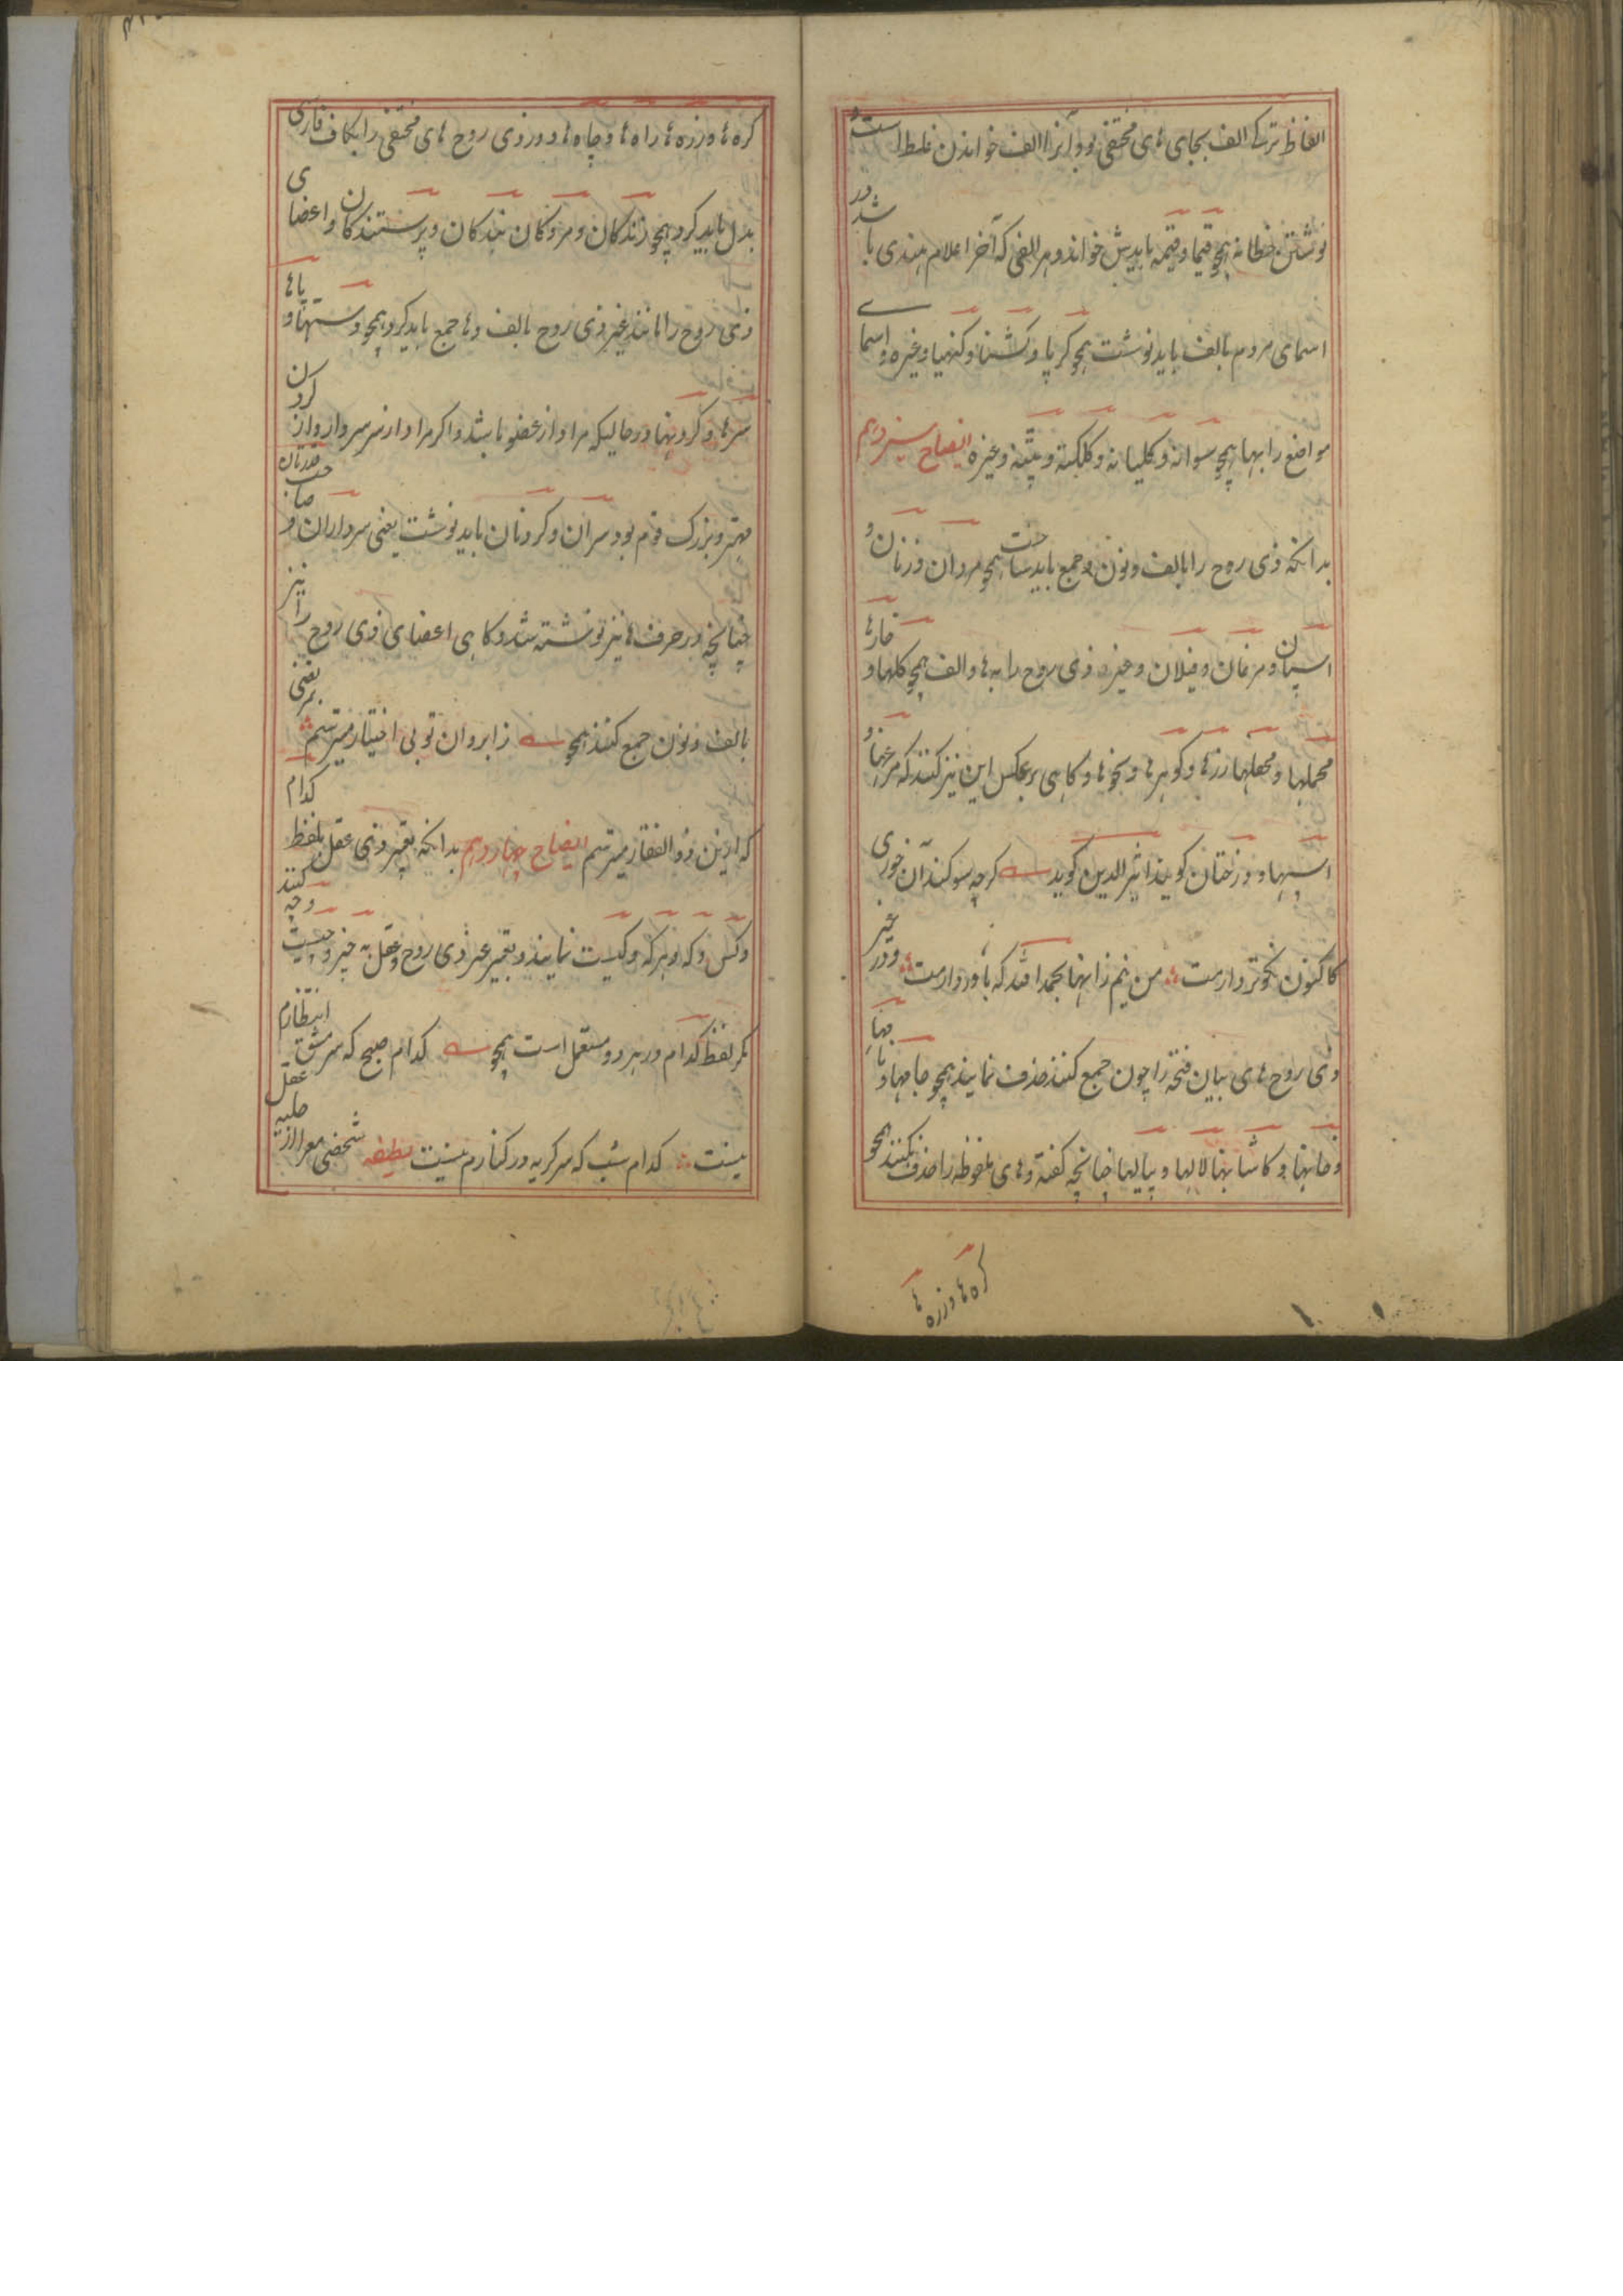 الفاظ ترکے الف بجای های مختفی بود آنرا الف خواندن غلط است و
نوشتن خطا نه همچو قیما و قیمه بایدش خواند و هر الفی که آخر اعلام هندی باشد در
اسمای مردم بالف باید نوشت همچو کرپا و کشنا و کنهیا و غیره و اسمای
مواضع را بها همچو سوانه و کلیانه و کلکته و پتنه و غیره ایضاح سیزدهم
بدانکه ذی روح را بالف و نون جمع باید ساخت همچو مردان و زنان و
اسپان و مرغان و فیلان و غیر ذی روح را به ها و الف همچو کلها و خارها
محملها و محفلها زرها و کوهرها و بخوها و کاهی برعکس این نیز کنند که مرغها و
اسپها و درختان کویند اثیر الدین کوید کرچه سوکند آن خوری
کاکنون نکوتر دارمت من نیم زانها بحمد الله که باور دارمت و در غیر
ذی روح های بیان فتحه را چون جمع کنند حذف نمایند همچو جامها و نامها
و خانها و کاشانها لالها و پیالها چنانچه کفته و های ملفوظه را حذف نکنند همچو
کره ها و زره ها
کره ها و زره ها راه ها و چاه ها و در ذی روح های مختفی را بکاف فارسی
بدل باید کرد همچو زندکان و مردکان بندکان و پرستندکان و اعضای
ذی روح را مانند غیر ذی روح بالف و ها جمع باید کرد همچو دستها و پاها
سرها و کردنها در حالیکه مراد از عضو باشد و اکر مراد از سر سردار و از کردن
مهتر و بزرک قوم بود سران و کردنان باید نوشت یعنی سرداران و صاحب قدرتان
چنانچه در حرف ها نیز نوشته شد و کاهی اعضای ذی روح را نیز
بالف و نون جمع کنند همچو ز ابروان تو بی اختیار میترسم
که ازین ذو الفقار میترسم ایضاح چهاردهم بدانکه تعبیر ذی عقل بلفظ کدام
و کس و که و هر که و کیست نمایند و بتعبیر غیر ذی روح و عقل به چیز و چیست و چه کنند
مکر لفظ کدام در هر دو مستعمل است همچو کدام صبح که سر مشق انتظارم
نیست کدام شب که سر کریه در کنارم نیست لطیفه شخصی معرا از حلیه عقل